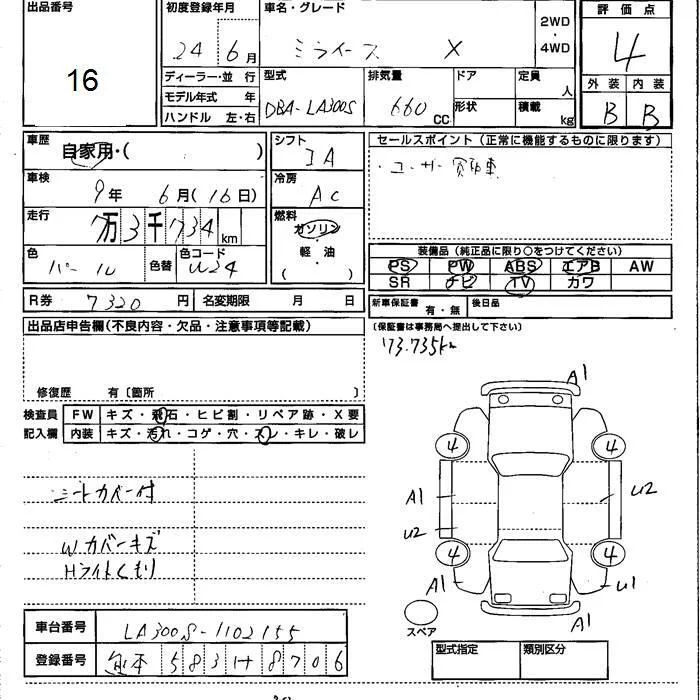 出品番号 初度登録年月 車名・グレード 評価点
16 24 6月 ミライース X 2WD・4WD 4
ディーラー・並行 型式 排気量 ドア 定員 人 外装 内装
モデル年式 年 DBA-LA300S 660CC 形状 積載 kg B B
ハンドル 左・右
車歴 自家用・( ) シフト IA セールスポイント(正常に機能するものに限ります)
車検 9年 6月(16日) 冷房 AC ・ユーザー買取車
走行 7万3千734km 燃料 ガソリン・軽油( )
色 パール 色替 色コード W24 装備品(純正品に限り○をつけてください)
PS PW ABS エアB AW
SR ナビ TV カワ
R券 7320円 名変期限 月 日 新車保証書 有・無 後日品
出品店申告欄(不良内容・欠品・注意事項等記載) (保証書は事務局へ提出して下さい)
73.735km
修復歴 有〔箇所 〕
検査員 FW キズ・飛石・ヒビ割・リペア跡・X要
記入欄 内装 キズ・汚れ・コゲ・穴・スレ・キレ・破レ
A1
4 4
シートカバー付
A1 U2
U2
Wカバーキズ
4 4
Hライトくもり
A1 U1
A1
スペア
車台番号 LA300S-1102155
型式指定 類別区分
登録番号 熊本 583 H 8706